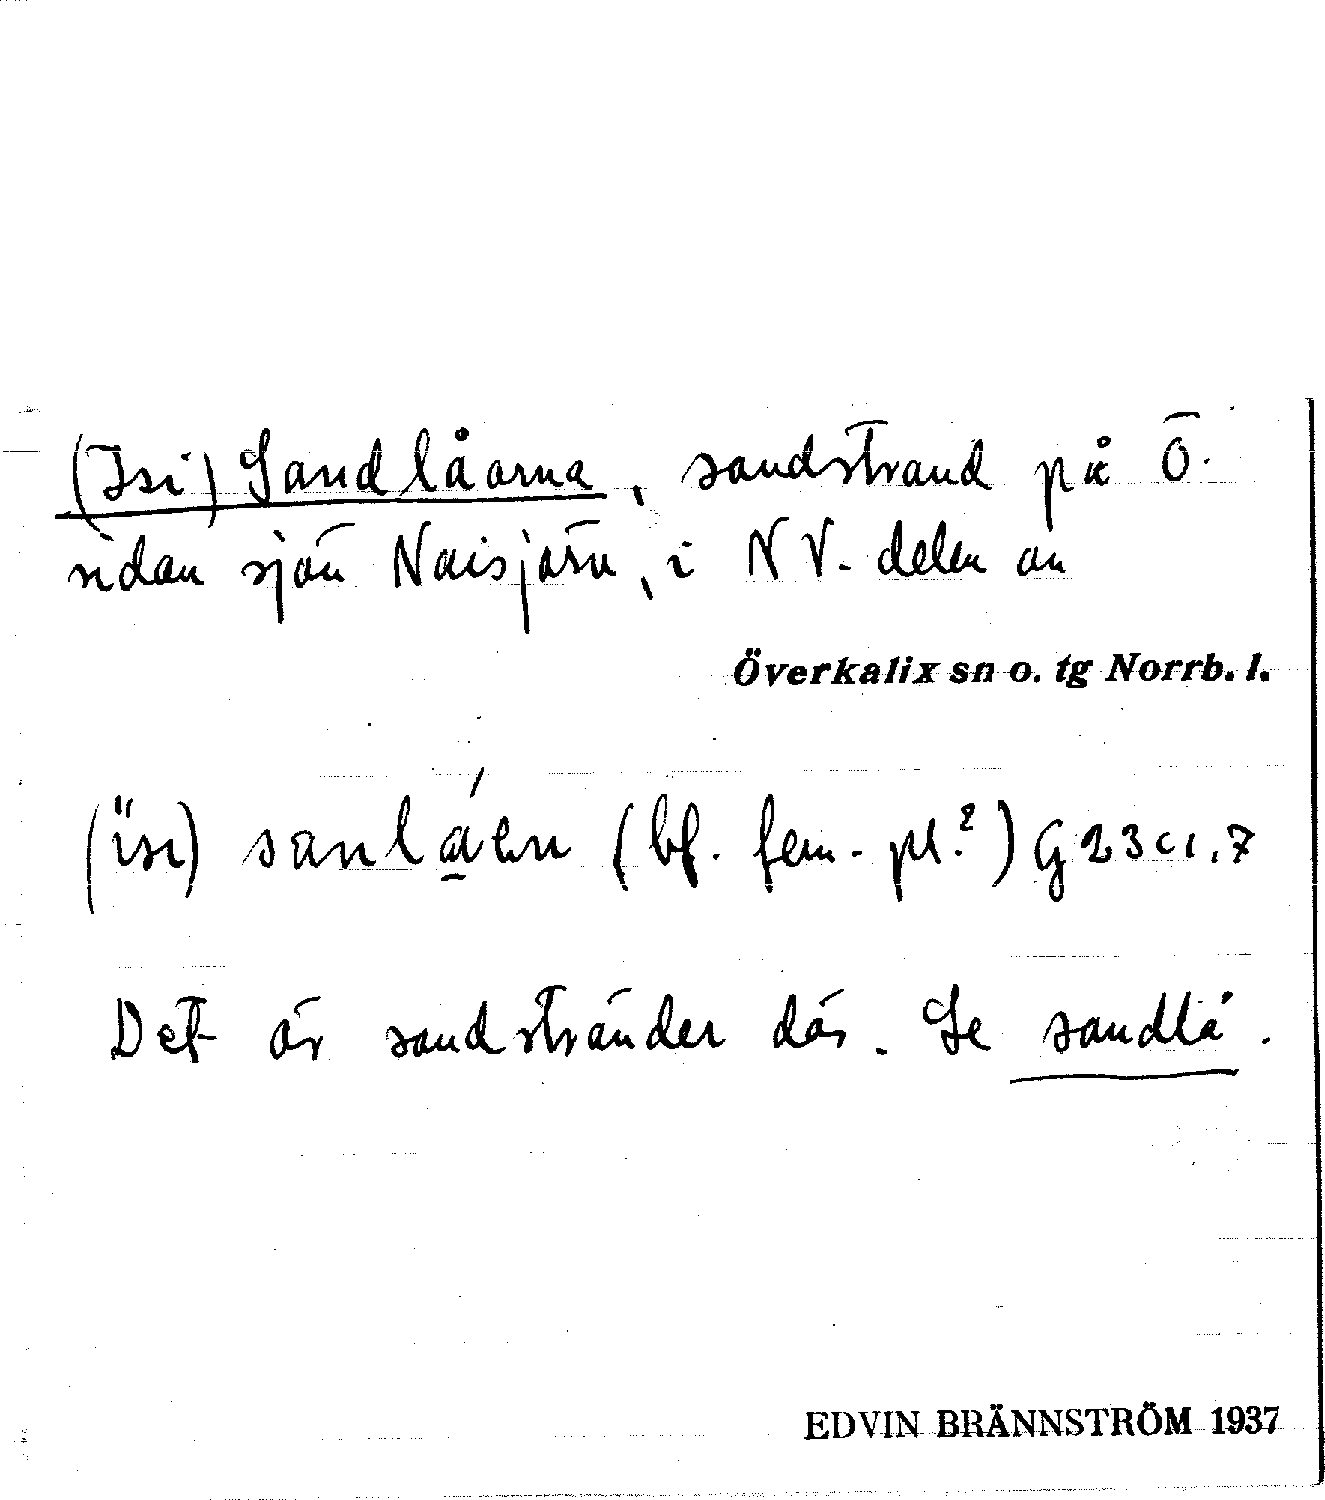 (Isi) Sandlåarna, sandstrand på Ö.
sidan sjön Naisjärv, i NV. delen av
Överkalix sn o. tg Norrb. l.
(ïsı) (bf. fem. pl.?) G 23 c 1,7
Det är sandstränder där. Se sandlå.
EDVIN BRÄNNSTRÖM 1937